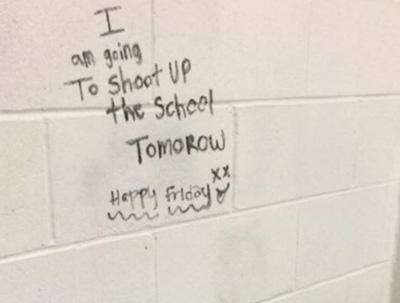 I
am going
To Shoot UP
the School
TOMOROW
xx
Happy Friday